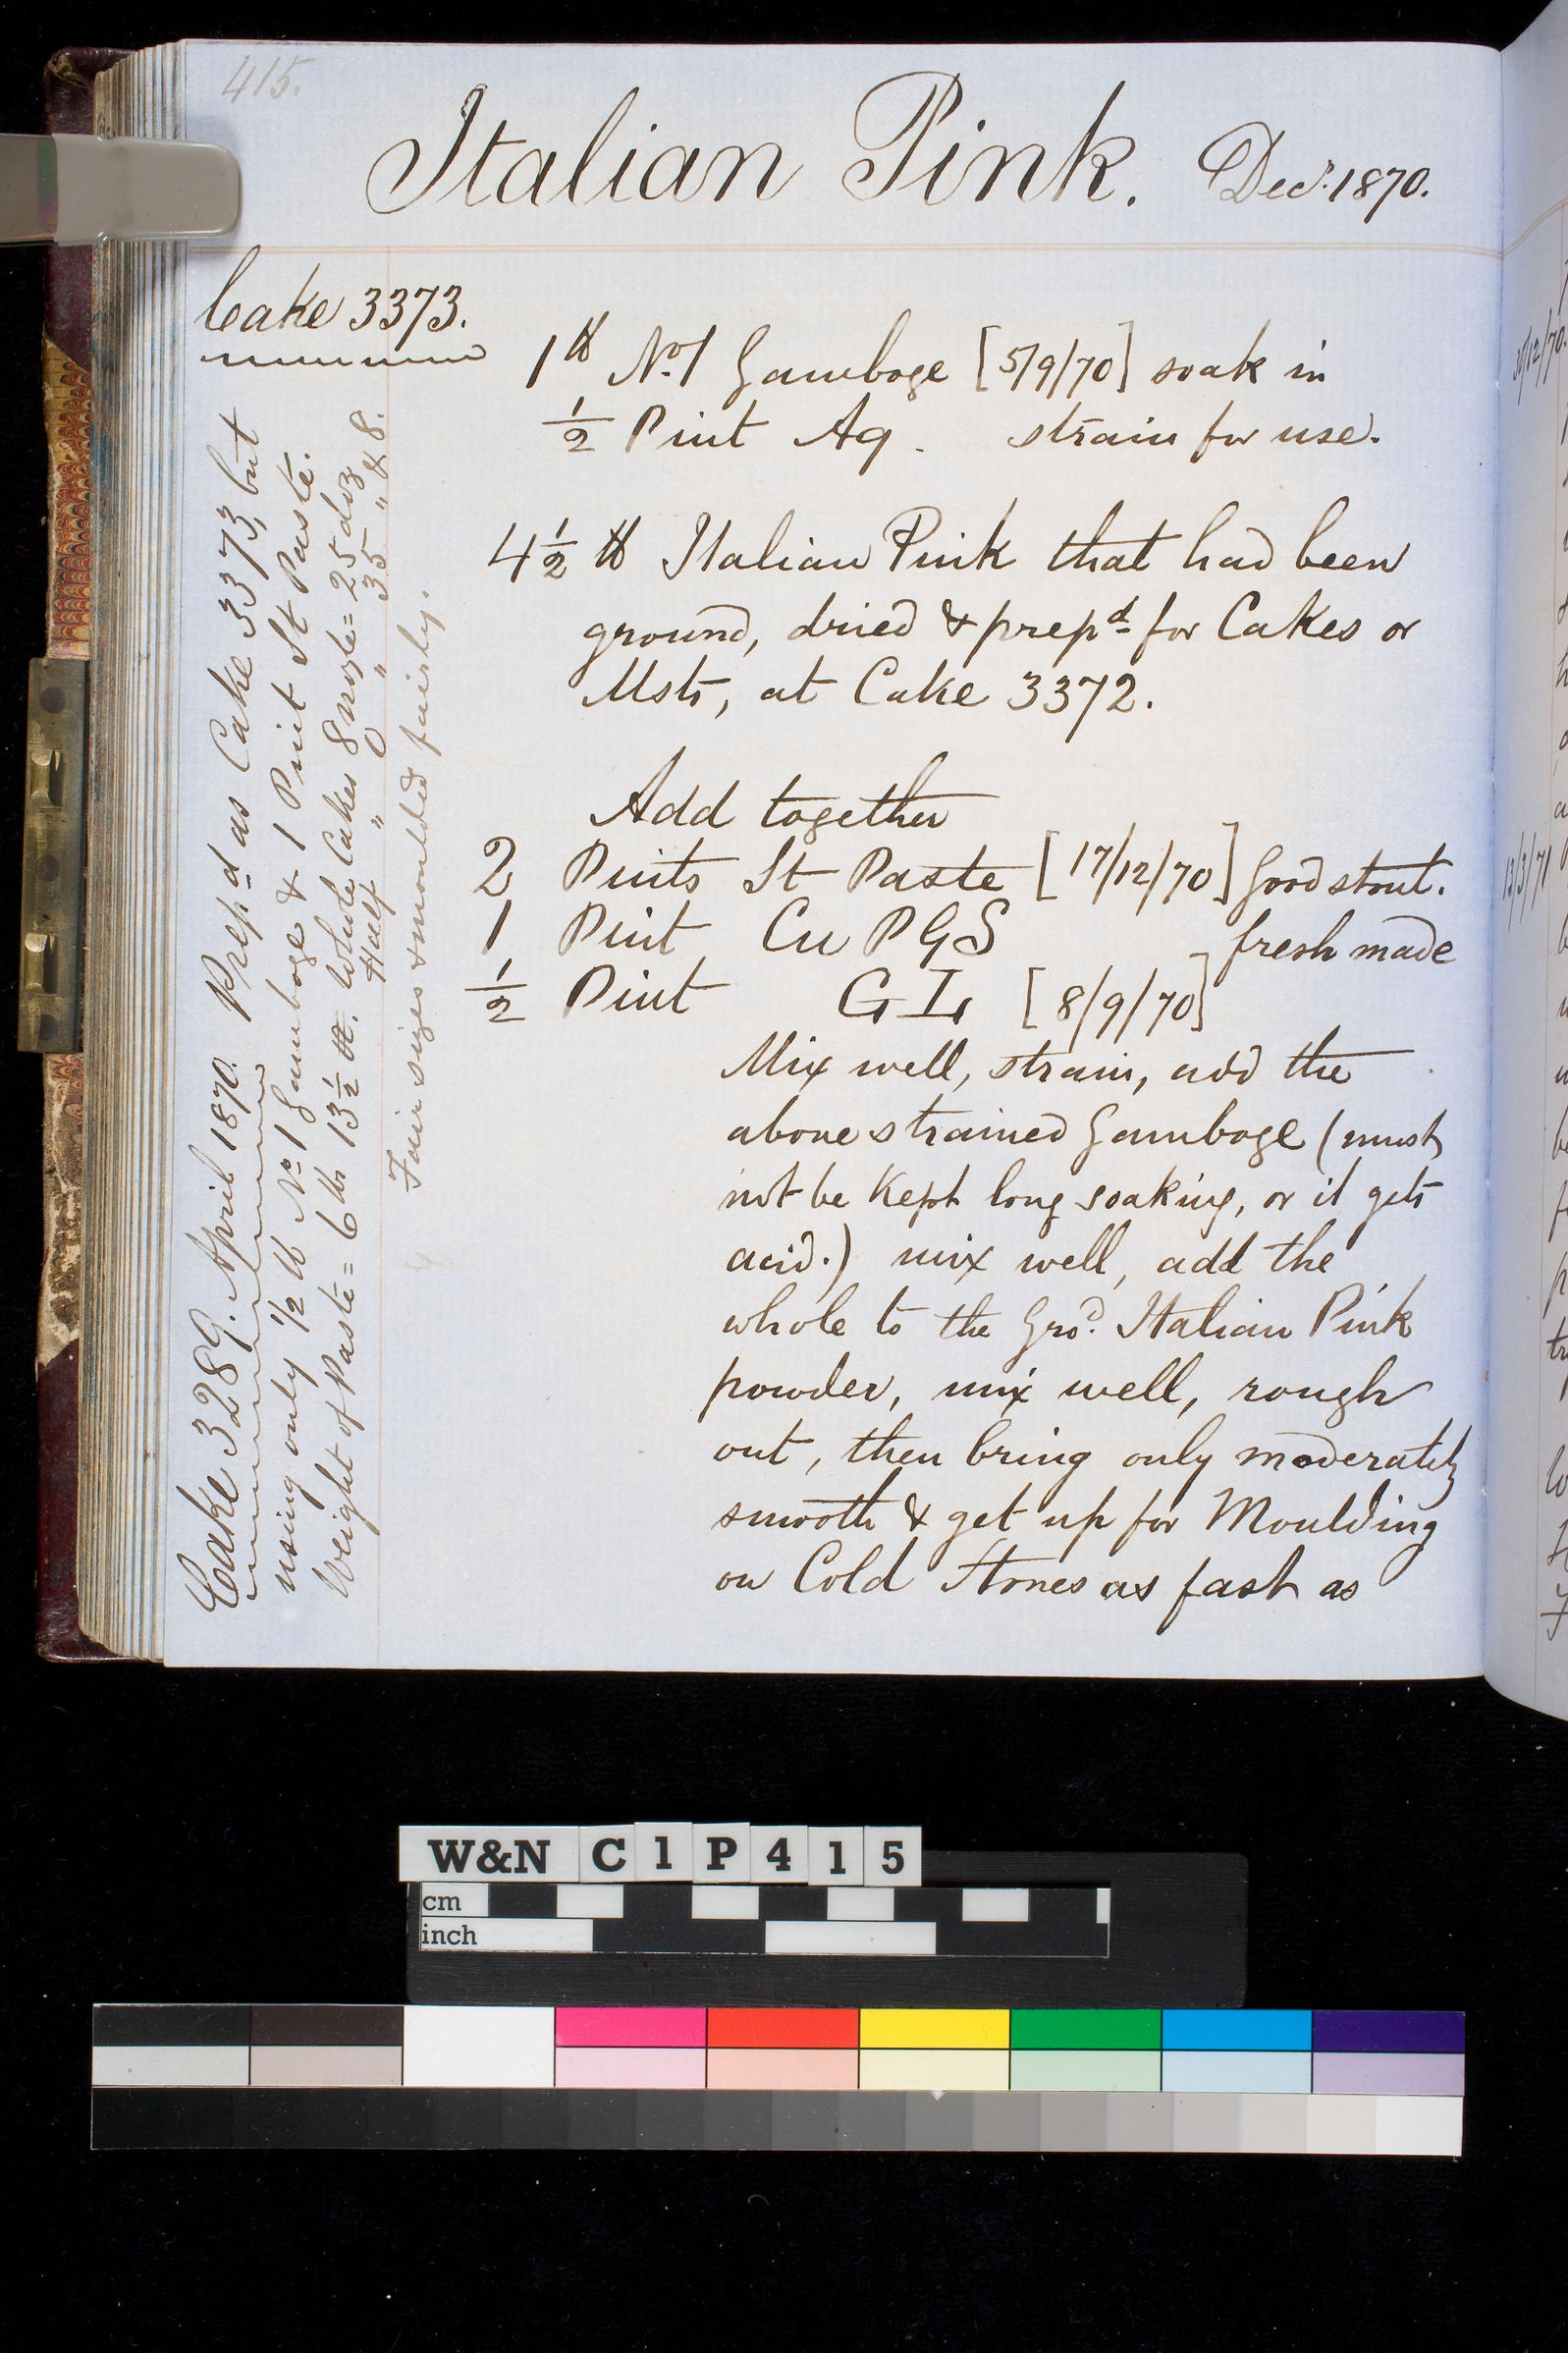 415.
Italian Pink. Decr. 1870.
Cake 3373.
1 lb No. 1 Gamboge [5/9/70] soak in
1/2 Pint Aq. strain for use.
4 1/2 lb Italian Pink that had been
ground, dried & prepd for Cakes or
Msts, at Cake 3372.
Add together
2 Pints St Paste [17/12/70] Good stout.
1 Pint Cu P G S fresh made
1/2 Pint G L [8/9/70]
Mix well, strain, add the
above strained Gamboge (must
not be kept long soaking, or it gets
acid.) mix well, add the
whole to the Grod. Italian Pink
powder, mix well, rough
out, then bring only moderately
smooth & get up for Moulding
on Cold Stones as fast as
Cake 3289. April 1870. Prepd as Cake 3373, but
using only 1/2 lb No 1 Gamboge & 1 Pint St Paste.
Weight of Paste = 6 lbs 13 1/2 oz. Whole Cakes 8 nozzle = 25 doz
Half " 0 " 35 " & 8.
Fair sizes & moulded fairly.
30/12/70.
13/3/71
W&N C1P415
cm
inch